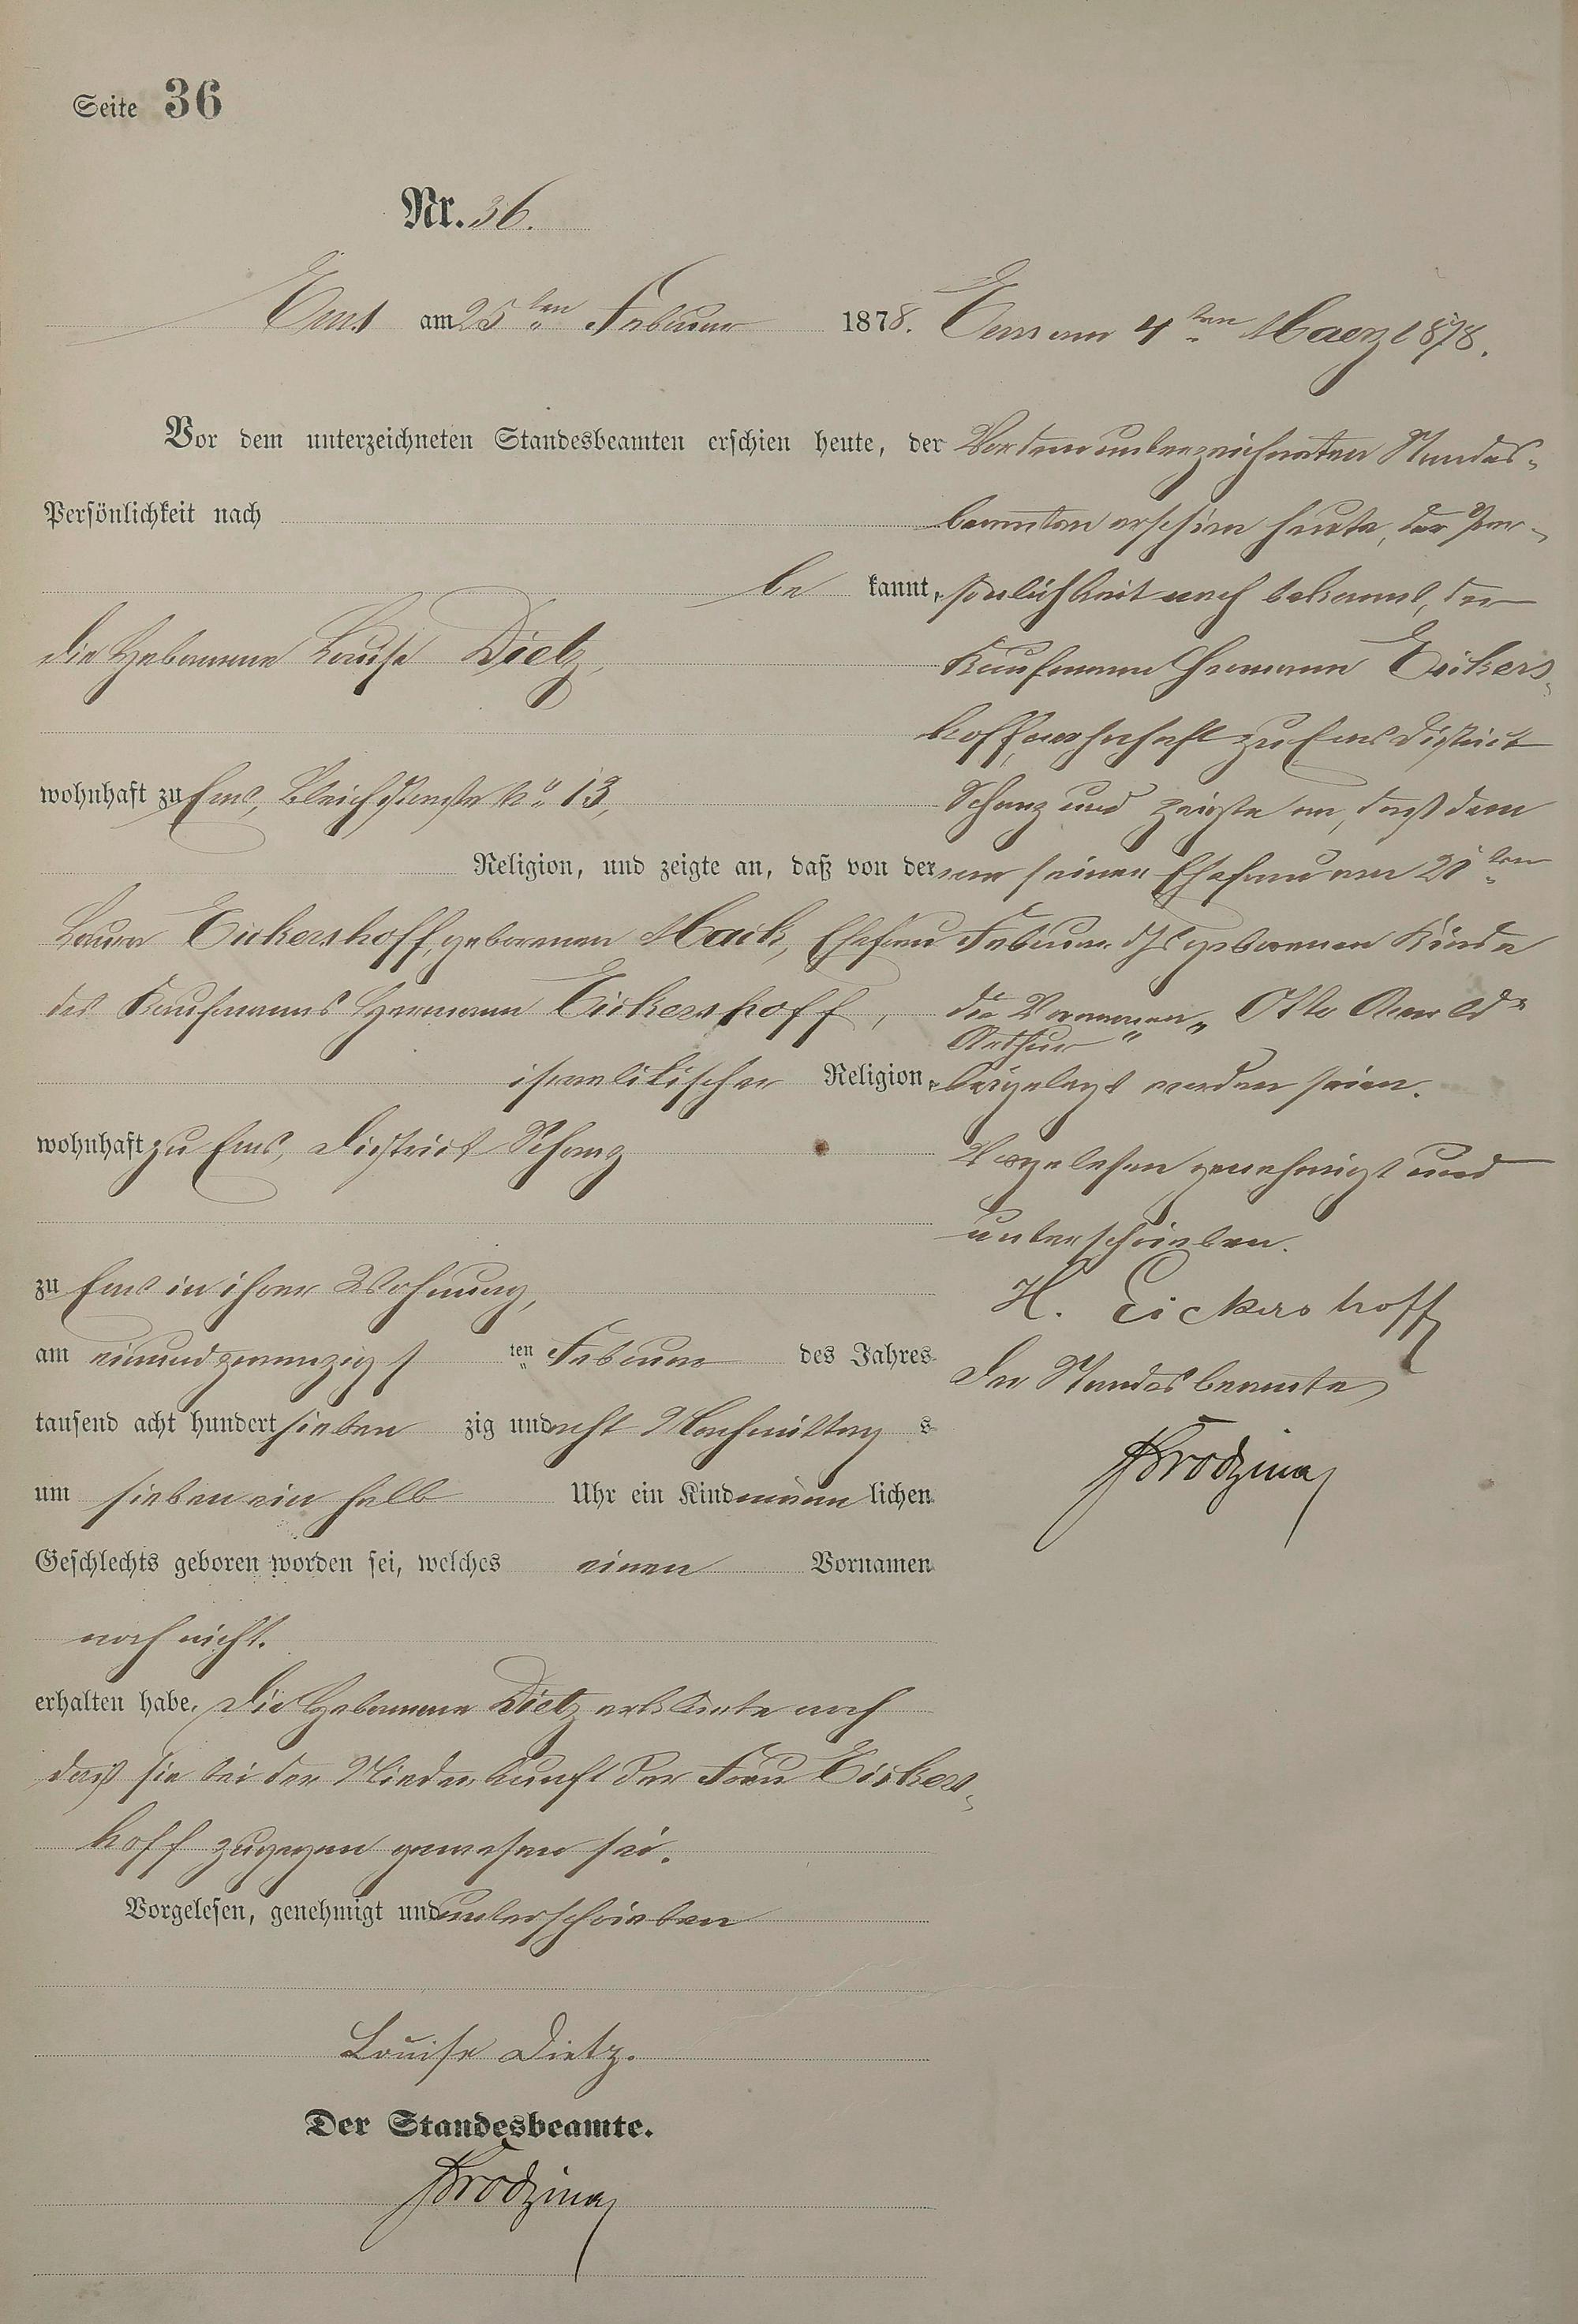 Seite 36
Nr. 36.
Ems am 25ten Februar 1878.
Vor dem unterzeichneten Standesbeamten erschien heute, der
Persönlichkeit nach
be kannt,
die Hebamme Louise Dietz,
wohnhaft zu Ems, Bleichstraße No 13,
Religion, und zeigte an, daß von der
Eickershoff, geborenen Mack, Ehefrau
des Kaufmanns Hermann Eickershoff,
israelitischer Religion,
wohnhaft zu Ems, District Schanz
zu Ems in ihrer Wohnung,
am einundzwanzigs ten Februar des Jahres
tausend acht hundert sieben zig und acht Nachmittag s
um sieben ein halb Uhr ein Kind männ lichen
Geschlechts geboren worden sei, welches einen Vornamen
noch nicht.
erhalten habe. Die Hebamme Dietz erklärte noch
daß sie bei der Niederkunft der Frau Eickers-
hoff zugegen gewesen sei.
Vorgelesen, genehmigt und unterschrieben
Louise Dietz.
Der Standesbeamte.
Ems am 4ten Maerz 1878.
Vor dem unterzeichneten Standes-
beamten erschien heute, der Per-
sönlichkeit nach bekannt, der
Kaufmann Hermann Eickers-
hoff, wohnhaft zu Ems District
Schanz und zeigte an, daß dem
von seiner Ehefrau am 21ten
Februar d. Js. geborenen Kinde
die Vornamen „Otto
Arthur"
beigelegt worden seien.
Vorgelesen genehmigt und
unterschrieben.
H. Eickershoff
Der Standesbeamte